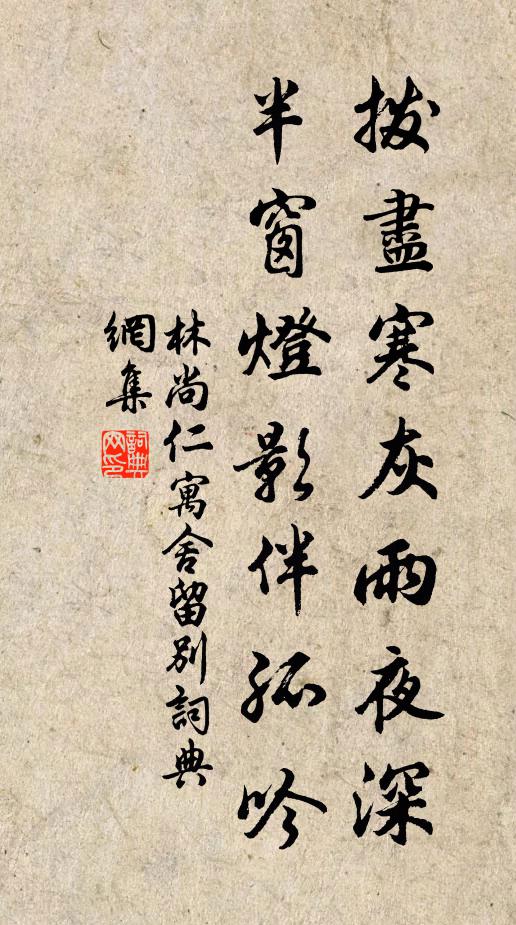 撥盡寒灰雨夜深
半窗燈影伴孤吟
林尚仁寓舍留別詞典
網集
詞典
网印